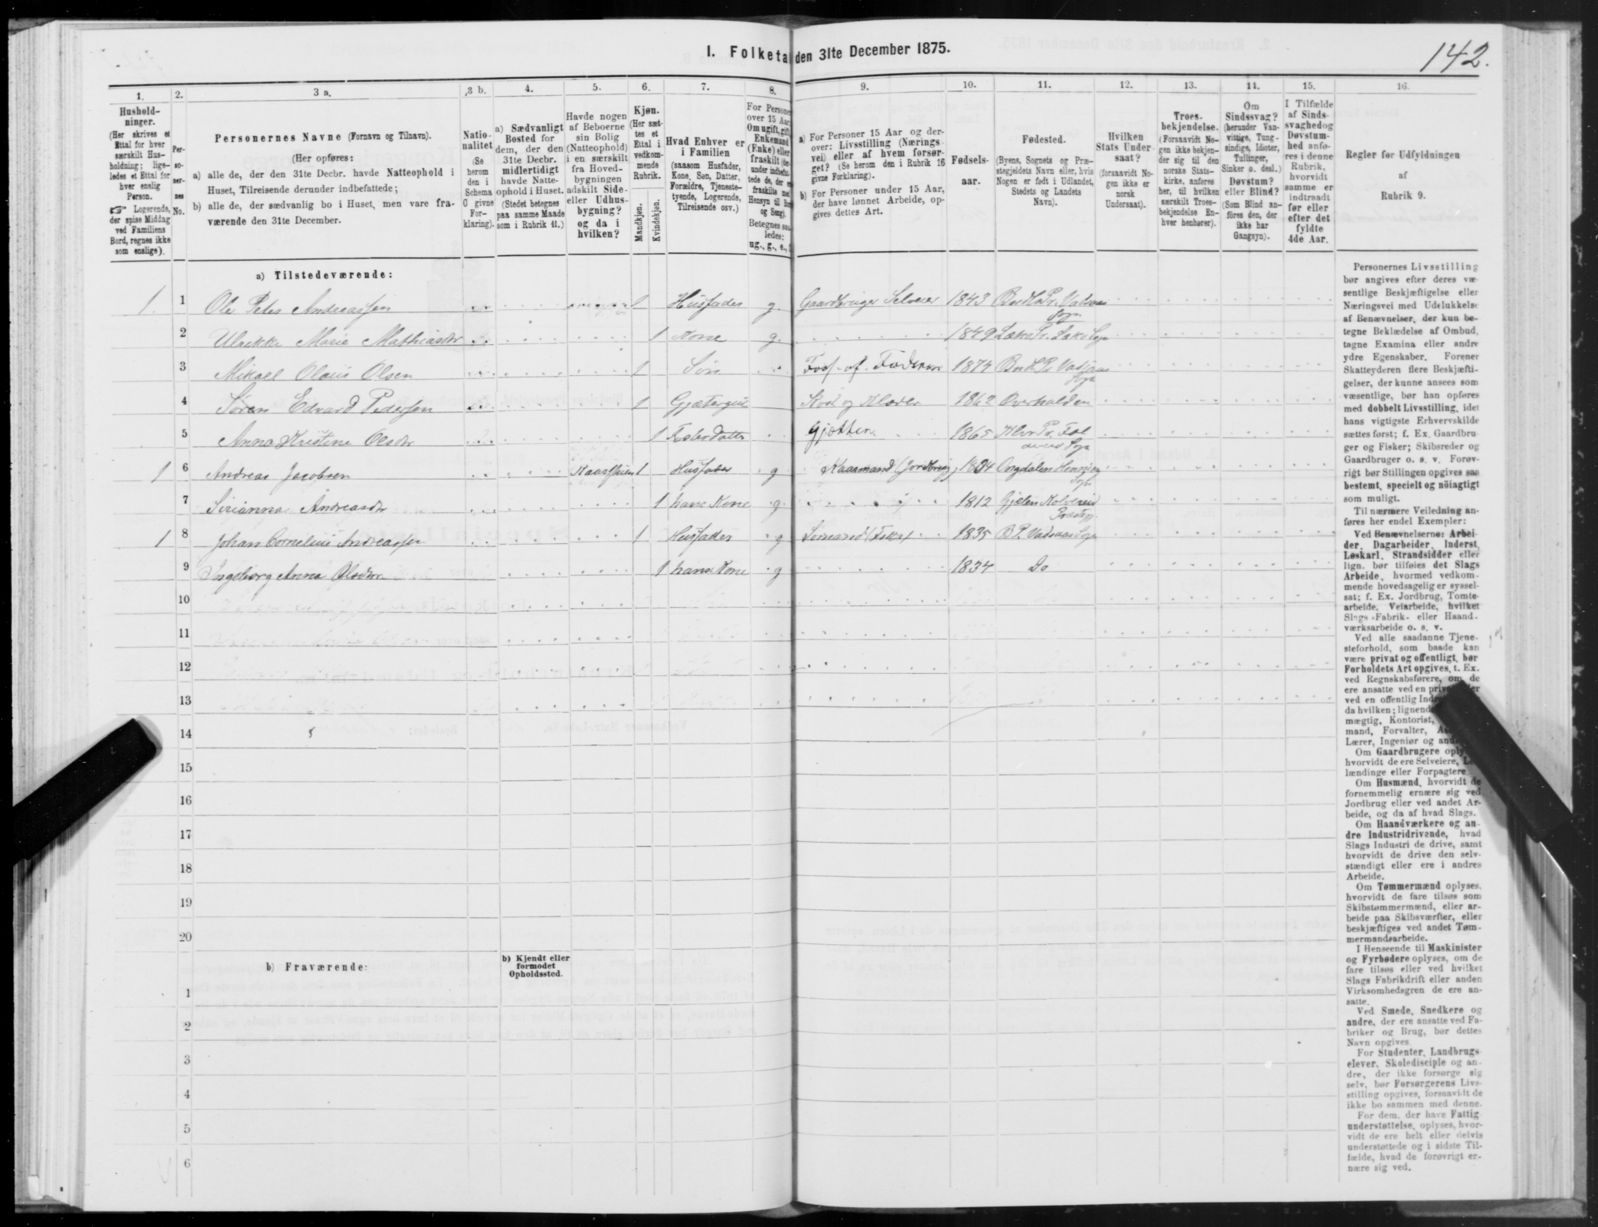 I. Folketa den 31te December 1875.
142.
1. 2. 3 a. 3 b. 4. 5. 6. 7. 8. 9. 10. 11. 12. 13. 14. 15. 16.
Hushold-
ninger.
(Her skrives et
Ettal for hver
særskilt Hus-
holdning; lige-
ledes et Ettal for
hver enslig
Person.
☞ Logerende,
der spise Middag
ved Familiens
Bord, regnes ikke
som enslige).
Per-
so-
ner-
nes
No.
Personernes Navne (Fornavn og Tilnavn).
(Her opføres:
a) alle de, der den 31te Decbr. havde Natteophold i
Huset, Tilreisende derunder indbefattede;
b) alle de, der sædvanlig bo i Huset, men vare fra-
værende den 31te December.
Natio-
nalitet
(Se
herom
den i
Schema
C givne
For-
klaring).
a) Sædvanligt
Bosted for
dem, der den
31te Decbr.
midlertidigt
havde Natte-
ophold i Huset.
(Stedet betegnes
paa samme Maade
som i Rubrik 11.)
Havde nogen
af Beboerne
sin Bolig
(Natteophold)
i en særskilt
fra Hoved-
bygningen
adskilt Side-
eller Udhus-
bygning?
og da i
hvilken?
Kjøn.
(Her sæt-
tes et
Ettal i
vedkom-
mende
Rubrik.
Mandkjøn.
Kvindekjøn.
Hvad Enhver er
i Familien
(saasom Husfader,
Kone, Søn, Datter,
Forældre, Tjeneste-
tyende, Logerende,
Tilreisende osv.)
For Persone
over 15 Aar
Om ugift, gift,
Enkemand
(Enke) eller
fraskilt
ug., g., e.,
a) For Personer 15 Aar og der-
over: Livsstilling (Nærings-
vei) eller af hvem forsør-
get? (Se herom den i Rubrik 16
givne Forklaring).
b) For Personer under 15 Aar,
der have lønnet Arbeide, op-
gives dettes Art.
Fødsels-
aar.
Fødested.
(Byens, Sognets og Præ-
stegjeldets Navn eller, hvis
Nogen er født i Udlandet,
Stedets og Landets
Navn).
Hvilken
Stats Under-
saat?
(forsaavidt No-
gen ikke er
norsk
Undersaat).
Troes-
bekjendelse.
(Forsaavidt No-
gen ikke bekjen-
der sig til den
norske Stats-
kirke, anføres
her, til hvilken
særskilt Troes-
bekjendelse En-
hver henhører).
Om
Sindssvag?
(herunder Van-
vittige, Tung-
sindige, Idioter,
Tullinger,
Sinker o. desl.)
Døvstum?
eller Blind?
(Som Blind an-
føres den, der
ikke har
Gangsyn).
I Tilfælde
af Sinds-
svaghed og
Døvstum-
hed anfø-
res i denne
Rubrik,
hvorvidt
samme er
indtraadt
før eller
efter det
fyldte
4de Aar.
Regler for Udfyldningen
af
Rubrik 9.
a) Tilstedeværende:
1 1 Ole Peter Andreassen 1 Husfader g. Gaardbruger Selveier 1843
2 Ulrikke Marie Mathiasdr 1 Kone g. 1849
3 Mikael Olaus Olsen 1 Søn 1874
4 Søren Edvard Pedersen 1 Gjætergut Kost og Klæder 1862 Overhalden
5 Anna Kristine Olsdr 1 1865
1 6 Andreas Jacobsen 1 Husfader g
7 Sirianna Andreasdr 1 hans Kone g. 1812
1 8 Johan Cornelius Andreassen 1 Husfader g 1835
9 Ingeborg Anna Olsdr 1 hans Kone g 1834 Do
10
11
12
13
14
15
16
17
18
19
20
b) Fraværende:
b) Kjendt eller
formodet
Opholdssted.
1
2
3
4
5
6
Personernes Livsstilling
bør angives efter deres væ-
sentlige Beskjæftigelse eller
Næringsvei med Udelukkelse
af Benævnelser, der kun be-
tegne Beklædelse af Ombud,
tagne Examina eller andre
ydre Egenskaber. Forener
Skatteyderen flere Beskjæfti-
gelser, der kunne ansees som
væsentlige, bør han opføres
med dobbelt Livsstilling, idet
hans vigtigste Erhvervskilde
sættes først; f. Ex. Gaardbru-
ger og Fisker; Skibsreder og
Gaardbruger o. s. v. Forøv-
rigt bør Stillingen opgives saa
bestemt, specielt og nöiagtigt
som muligt.
Til nærmere Veiledning an-
føres her endel Exempler:
Ved Benævnelserne: Arbei-
der, Dagarbeider, Inderst,
Løskarl, Strandsidder eller
lign. bør tilføies det Slags
Arbeide, hvormed vedkom-
mende hovedsagelig er syssel-
sat; f. Ex. Jordbrug, Tomte-
arbeide, Veiarbeide, hvilket
Slags Fabrik- eller Haand-
værksarbeide o. s. v.
Ved alle saadanne Tjene-
steforhold, som baade kan
være privat og offentligt, bør
Forholdets Art opgives, t. Ex.
ved Regnskabsførere, om de
ere ansatte ved en
ved en offentlig
da hvilken; lignend
mægtig, Kontorist,
mand, Forvalter,
Lærer, Ingeniør og
Om Gaardbrugere
hvorvidt de ere Selveiere,
lændinge eller Forpagtere
Om Husmænd, hvorvidt de
fornemmelig ernære sig ved
Jordbrug eller ved andet Ar-
beide, og da af hvad Slags.
Om Haandværkere og an-
dre Industridrivende, hvad
Slags Industri de drive, samt
hvorvidt de drive den selv-
stændigt eller ere i andres
Arbeide.
Om Tømmermænd oplyses,
hvorvidt de fare tilsøs som
Skibstømmermænd, eller ar-
beide paa Skibsværfter, eller
beskjæftiges ved andet Tøm-
mermandsarbeide.
I Henseende til Maskinister
og Fyrbødere oplyses, om de
fare tilsøs eller ved hvilket
Slags Fabrikdrift eller anden
Virksomhedsgren de ere an-
satte.
Ved Smede, Snedkere og
andre, der ere ansatte ved Fa-
briker og Brug, bør dettes
Navn opgives.
For Studenter, Landbrugs-
elever, Skoledisciple og an-
dre, der ikke forsørge sig
selv, bør Forsørgerens Livs-
stilling opgives, forsaavidt de
ikke bo sammen med denne.
For dem, der have Fattig-
understøttelse, oplyses, hvor-
vidt de ere helt eller delvis
understøttede og i sidste Til-
fælde, hvad de forøvrigt er-
nære sig ved.